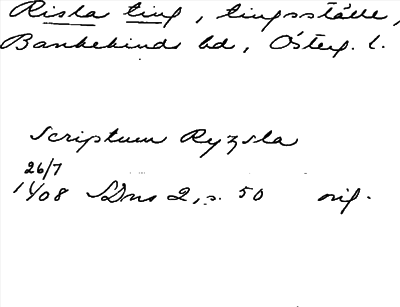 Risla ting, tingsställe,
Bankekinds hd, Österg. l.
Scriptum Ryzsla
26/7
1408 SDns 2, s. 50 orig.